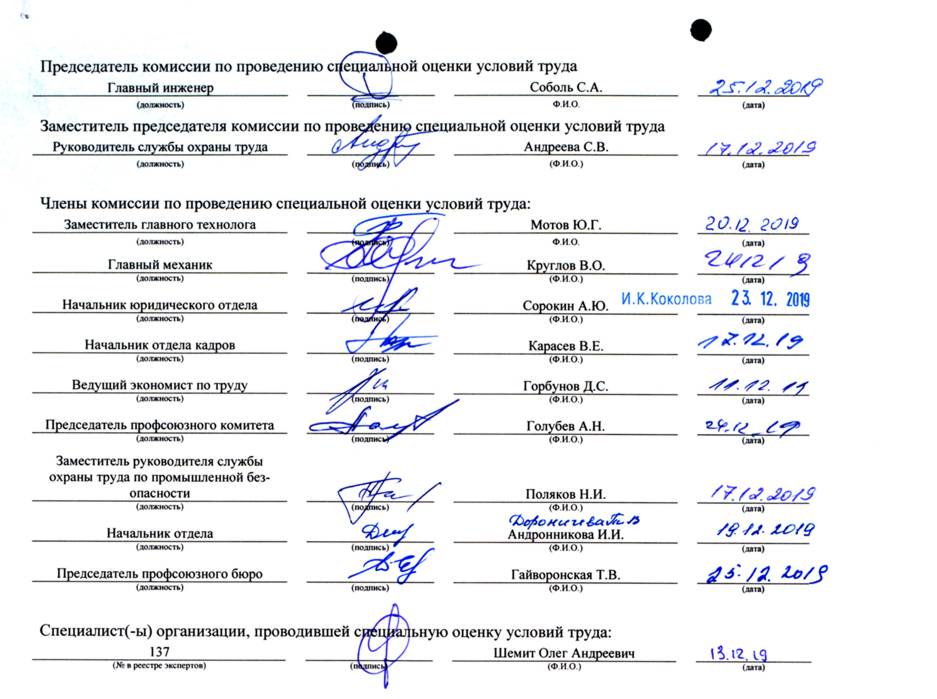 Председатель комиссии по проведению специальной оценки условий труда
Главный инженер Соболь С.А. 25.12.2019
(должность) (подпись) Ф.И.О. (дата)
Заместитель председателя комиссии по проведению специальной оценки условий труда
Руководитель службы охраны труда Андреева С.В. 17.12.2019
(должность) (подпись) (Ф.И.О.) (дата)
Члены комиссии по проведению специальной оценки условий труда:
Заместитель главного технолога Мотов Ю.Г. 20.12.2019
(должность) (подпись) Ф.И.О. (дата)
Главный механик Круглов В.О.
(должность) (подпись) (Ф.И.О.) (дата)
Начальник юридического отдела Сорокин А.Ю. И.К.Коколова 23.12.2019
(должность) (подпись) (Ф.И.О.) (дата)
Начальник отдела кадров Карасев В.Е. 17.12.19
(должность) (подпись) (Ф.И.О.) (дата)
Ведущий экономист по труду Горбунов Д.С. 11.12.19
(должность) (подпись) (Ф.И.О.) (дата)
Председатель профсоюзного комитета Голубев А.Н. 24.12.19
(должность) (подпись) (Ф.И.О.) (дата)
Заместитель руководителя службы
охраны труда по промышленной без-
опасности Поляков Н.И. 17.12.2019
(должность) (подпись) (Ф.И.О.) (дата)
Дороничева Т.В
Начальник отдела Андронникова И.И. 19.12.2019
(должность) (подпись) (Ф.И.О.) (дата)
Председатель профсоюзного бюро Гайворонская Т.В. 25.12.2019
(должность) (подпись) (Ф.И.О.) (дата)
Специалист(-ы) организации, проводившей специальную оценку условий труда:
137 Шемит Олег Андреевич 13.12.19
(№ в реестре экспертов) (подпись) (Ф.И.О.) (дата)